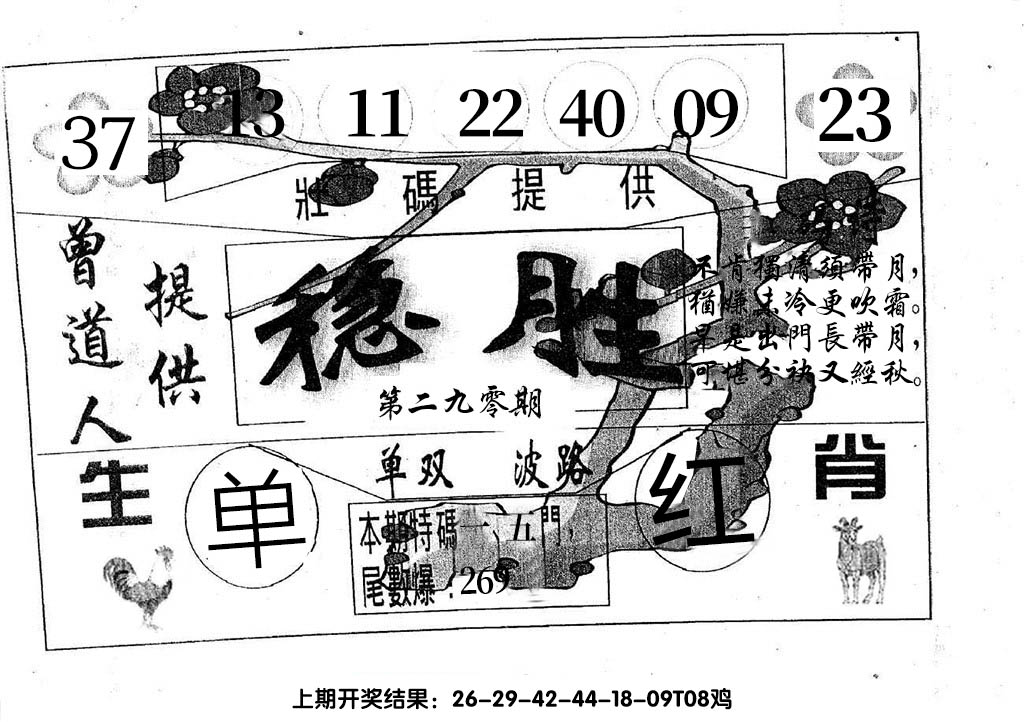 37 13 11 22 40 09 23
壯碼提供
曾道人
提供
稳胜
第二九零期
不肯獨清須帶月，
猶嫌未冷更吹霜。
是出門長帶月，
可堪分袂又經秋。
单双 波路
生
肖
单
红
本期特碼一、五門，
尾數爆：269
上期开奖结果：26-29-42-44-18-09T08鸡